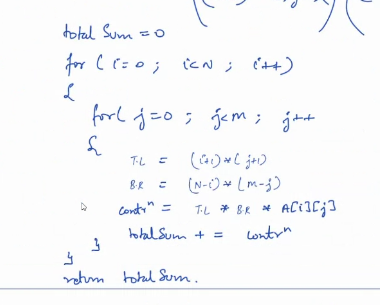 total Sum = 0
for ( i=0 ; i<N ; i++)
{
for( j=0 ; j<m ; j++
{
T.L = (i+1) * ( j+1)
B.R = (N-i) * (m-j)
contrⁿ = T.L * B.R * A[i][j]
totalSum + = contrⁿ
}
}
return totalSum.